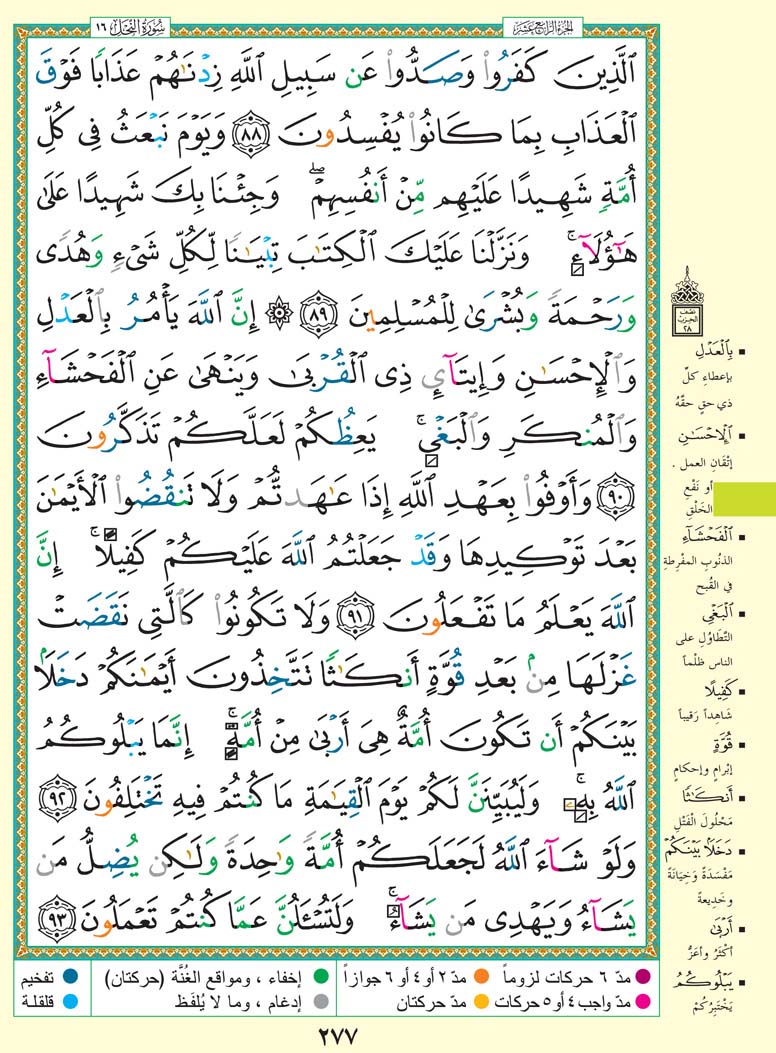 سُورَةُ النَّحْلِ ١٦
الجُزءُ الرَّابِعَ عَشَرَ
ٱلَّذِينَ كَفَرُوا۟ وَصَدُّوا۟ عَن سَبِيلِ ٱللَّهِ زِدْنَـٰهُمْ عَذَابًا فَوْقَ
ٱلْعَذَابِ بِمَا كَانُوا۟ يُفْسِدُونَ ٨٨ وَيَوْمَ نَبْعَثُ فِى كُلِّ
أُمَّةٍ شَهِيدًا عَلَيْهِم مِّنْ أَنفُسِهِمْ ۖ وَجِئْنَا بِكَ شَهِيدًا عَلَىٰ
هَـٰٓؤُلَآءِ ۚ وَنَزَّلْنَا عَلَيْكَ ٱلْكِتَـٰبَ تِبْيَـٰنًا لِّكُلِّ شَىْءٍ وَهُدًى
وَرَحْمَةً وَبُشْرَىٰ لِلْمُسْلِمِينَ ٨٩ ۞ إِنَّ ٱللَّهَ يَأْمُرُ بِٱلْعَدْلِ
وَٱلْإِحْسَـٰنِ وَإِيتَآئِ ذِى ٱلْقُرْبَىٰ وَيَنْهَىٰ عَنِ ٱلْفَحْشَآءِ
وَٱلْمُنكَرِ وَٱلْبَغْىِ ۚ يَعِظُكُمْ لَعَلَّكُمْ تَذَكَّرُونَ
٩٠ وَأَوْفُوا۟ بِعَهْدِ ٱللَّهِ إِذَا عَـٰهَدتُّمْ وَلَا تَنقُضُوا۟ ٱلْأَيْمَـٰنَ
بَعْدَ تَوْكِيدِهَا وَقَدْ جَعَلْتُمُ ٱللَّهَ عَلَيْكُمْ كَفِيلًا ۚ إِنَّ
ٱللَّهَ يَعْلَمُ مَا تَفْعَلُونَ ٩١ وَلَا تَكُونُوا۟ كَٱلَّتِى نَقَضَتْ
غَزْلَهَا مِنۢ بَعْدِ قُوَّةٍ أَنكَـٰثًا تَتَّخِذُونَ أَيْمَـٰنَكُمْ دَخَلًۢا
بَيْنَكُمْ أَن تَكُونَ أُمَّةٌ هِىَ أَرْبَىٰ مِنْ أُمَّةٍ ۚ إِنَّمَا يَبْلُوكُمُ
ٱللَّهُ بِهِۦ ۚ وَلَيُبَيِّنَنَّ لَكُمْ يَوْمَ ٱلْقِيَـٰمَةِ مَا كُنتُمْ فِيهِ تَخْتَلِفُونَ ٩٢
وَلَوْ شَآءَ ٱللَّهُ لَجَعَلَكُمْ أُمَّةً وَٰحِدَةً وَلَـٰكِن يُضِلُّ مَن
يَشَآءُ وَيَهْدِى مَن يَشَآءُ ۚ وَلَتُسْـَٔلُنَّ عَمَّا كُنتُمْ تَعْمَلُونَ ٩٣
نصف
الحزب
٢٨
بِٱلْعَدْلِ
بإعطاءِ كلّ
ذي حق حقَّهُ
ٱلْإِحْسَـٰنِ
إتْقَانِ العمل .
أو نَفْعِ
الخَلْقِ
ٱلْفَحْشَآءِ
الذنُوبِ المفْرِطةِ
في القُبح
ٱلْبَغْىِ
التَّطَاوُلِ على
الناس ظلْماً
كَفِيلًا
شَاهِداً رَقيباً
قُوَّةٍ
إبْرامٍ وإحكامٍ
أَنكَـٰثًا
مَحْلُولَ الفَتْلِ
دَخَلًۢا بَيْنَكُمْ
مَفْسَدَةً وَخِيَانَةً
وخَديعةً
أَرْبَىٰ
أكثَرُ وأعَزُّ
يَبْلُوكُمُ
يَخْتَبِرُكُمْ
مدّ ٦ حركات لزوماً مدّ ٢ أو ٤ أو ٦ جوازاً إخفاء ، ومواقع الغُنَّة (حركتان) تفخيم
مدّ واجب ٤ أو ٥ حركات مدّ حركتان إدغام ، وما لا يُلفَظ قلقلة
٢٧٧